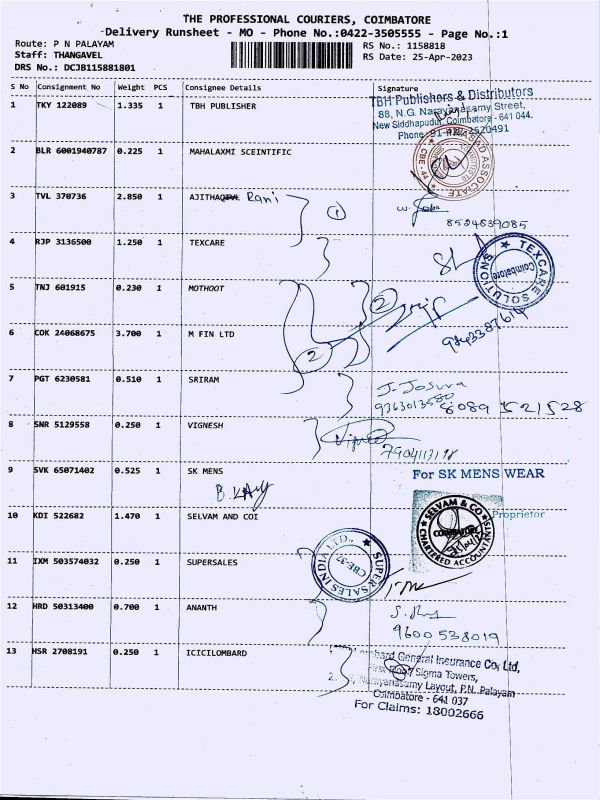 THE PROFESSIONAL COURIERS, COIMBATORE
Delivery Runsheet - MO - Phone No.:0422-3505555 - Page No.:1
Route: P N PALAYAM
Staff: THANGAVEL
DRS No.: DCJB115881801
RS No.: 1158818
RS Date: 25-Apr-2023
S No Consignment No Weight PCS Consignee Details Signature
1 TKY 122089 1.335 1 TBH PUBLISHER
TBH Publishers & Distributors
88, N.G. Narayanasamy Street,
New Siddhapudur, Coimbatore - 641 044.
2 BLR 6001940787 0.225 1 MAHALAXMI SCEINTIFIC
ASSOCIATE
CBE - 44
3 TVL 370736 2.850 1 AJITHA Rani
1
8524639085
4 RJP 3136500 1.250 1 TEXCARE
TEXCARE SOLUTIONS
Coimbatore
5 TNJ 601915 0.230 1 MOTHOOT
2
6 COK 24068675 3.700 1 M FIN LTD
2
7 PGT 6230581 0.510 1 SRIRAM
J. Josuva
9363013580
8089 521528
8 SNR 5129558 0.250 1 VIGNESH
9 SVK 65071402 0.525 1 SK MENS
For SK MENS WEAR
Proprietor
10 KDI 522682 1.470 1 SELVAM AND COI
SELVAM & CO
COIMBATORE
CHARTERED ACCOUNTANTS
11 IXM 503574032 0.250 1 SUPERSALES
SUPER SALES INDIA LTD.
CBE-37
12 HRD 50313400 0.700 1 ANANTH
9600538019
13 HSR 2708191 0.250 1 ICICILOMBARD
General Insurance Co, Ltd,
Sigma Towers,
Narayanasamy Layout, P.N. Palayam
Coimbatore - 641 037
For Claims: 18002666